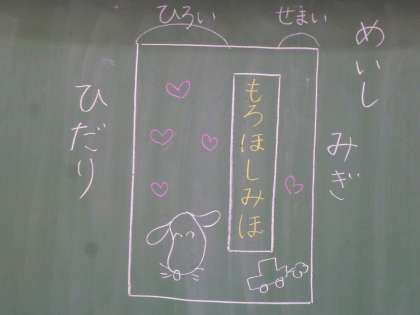 めいし
せまい
ひろい
みぎ
もろほしみほ
ひだり